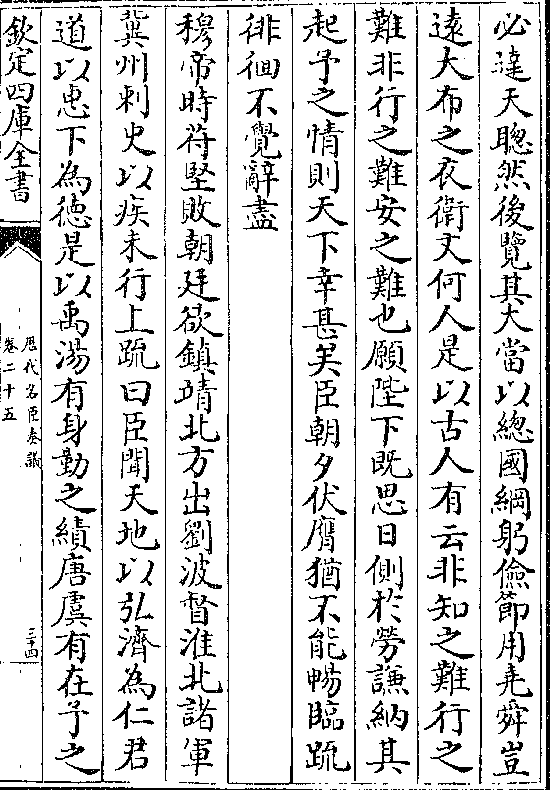 必達天聰然後覽其大當以總國綱躬儉節用堯舜豈
遠大布之衣衛文何人是以古人有云非知之難行之
難非行之難安之難也願陛下既思日側於勞謙納其
起予之情則天下幸甚矣臣朝夕伏膺猶不能暢臨䟽
徘徊不覺辭盡
穆帝時苻堅敗朝廷欲鎮靖北方出劉波督淮北諸軍
冀州刺史以疾未行上䟽曰臣聞天地以弘濟為仁君
道以惠下為徳是以禹湯有身勤之績唐虞有在予之
欽定四庫全書
歴代名臣奏議
卷二十五
三十四